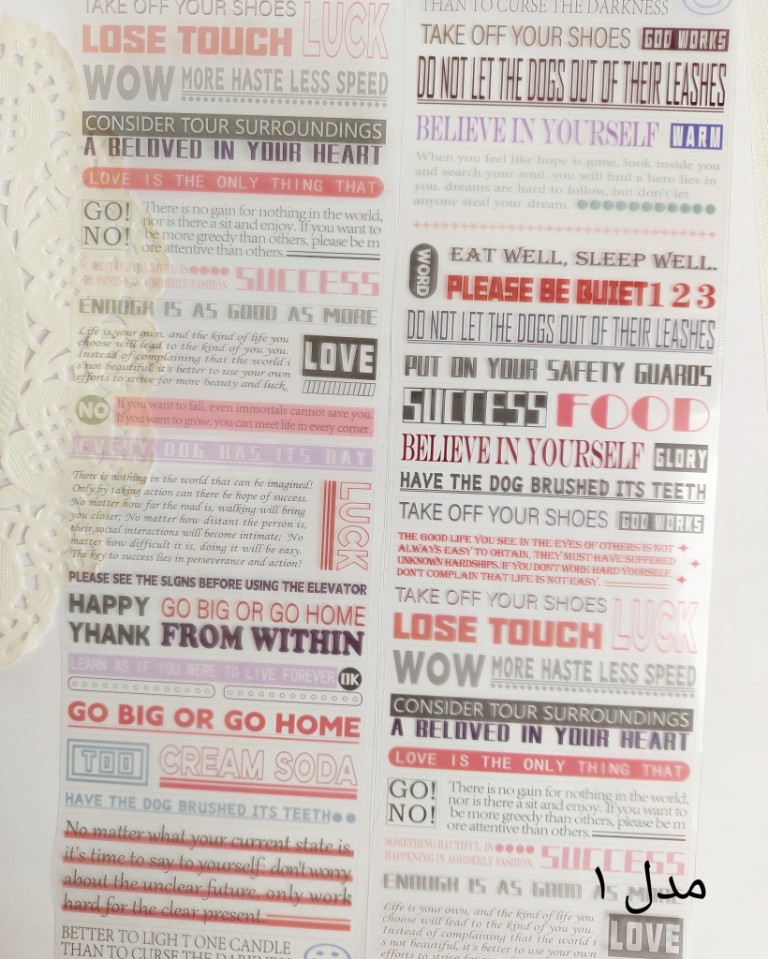 TAKE OFF YOUR SHOES LUCK
LOSE TOUCH
WOW MORE HASTE LESS SPEED
CONSIDER TOUR SURROUNDINGS
A BELOVED IN YOUR HEART
LOVE IS THE ONLY THING THAT
GO! NO!
There is no gain for nothing in the world,
nor is there a sit and enjoy. If you want to
be more greedy than others, please be m
ore attentive than others.
SUCCESS
ENOUGH IS AS GOOD AS MORE
Life is your own, and the kind of life you
choose will lead to the kind of you you.
Instead of complaining that the world i
s not beautiful, it's better to use your own
efforts to strive for more beauty and luck.
LOVE
NO
If you want to fall, even immortals cannot save you.
If you want to grow, you can meet life in every corner.
EVERY DOG HAS ITS DAY
There is nothing in the world that can be imagined!
Only by taking action can there be hope of success.
No matter how far the road is, walking will bring
you closer; No matter how distant the person is,
their social interactions will become intimate; No
matter how difficult it is, doing it will be easy.
The key to success lies in perseverance and action!
LUCK
PLEASE SEE THE SLGNS BEFORE USING THE ELEVATOR
HAPPY GO BIG OR GO HOME
YHANK FROM WITHIN
LEARN AS IF YOU WERE TO LIVE FOREVER OK
GO BIG OR GO HOME
TOO CREAM SODA
HAVE THE DOG BRUSHED ITS TEETH
No matter what your current state is,
it's time to say to yourself: don't worry
about the unclear future, only work
hard for the clear present.
BETTER TO LIGH T ONE CANDLE
THAN TO CURSE THE DARKNESS
THAN TO CURSE THE DARKNESS
TAKE OFF YOUR SHOES GOD WORKS
DO NOT LET THE DOGS OUT OF THEIR LEASHES
BELIEVE IN YOURSELF WARM
When you feel like hope is gone, look inside you
and search your soul. you will find a hero lies in
you. dreams are hard to follow, but don't let
anyone steal your dream.
WORD
EAT WELL, SLEEP WELL.
PLEASE BE QUIET 1 2 3
DO NOT LET THE DOGS OUT OF THEIR LEASHES
PUT ON YOUR SAFETY GUARDS
SUCCESS FOOD
BELIEVE IN YOURSELF GLORY
HAVE THE DOG BRUSHED ITS TEETH
TAKE OFF YOUR SHOES GOD WORKS
THE GOOD LIFE YOU SEE IN THE EYES OF OTHERS IS NOT
ALWAYS EASY TO OBTAIN, THEY MUST HAVE SUFFERED
UNKNOWN HARDSHIPS. IF YOU DON'T WORK HARD YOURSELF,
DON'T COMPLAIN THAT LIFE IS NOT EASY.
TAKE OFF YOUR SHOES LUCK
LOSE TOUCH
WOW MORE HASTE LESS SPEED
CONSIDER TOUR SURROUNDINGS
A BELOVED IN YOUR HEART
LOVE IS THE ONLY THING THAT
GO! NO!
There is no gain for nothing in the world,
nor is there a sit and enjoy. If you want to
be more greedy than others, please be m
ore attentive than others.
SOMETHING BAUTIFUL IS
HAPPENING IN AORDERLY FASHION.
SUCCESS
ENOUGH IS AS GOOD AS MORE
مدل ۱
Life is your own, and the kind of life you
choose will lead to the kind of you you.
Instead of complaining that the world i
s not beautiful, it's better to use your own
efforts to strive for more beauty and luck.
LOVE